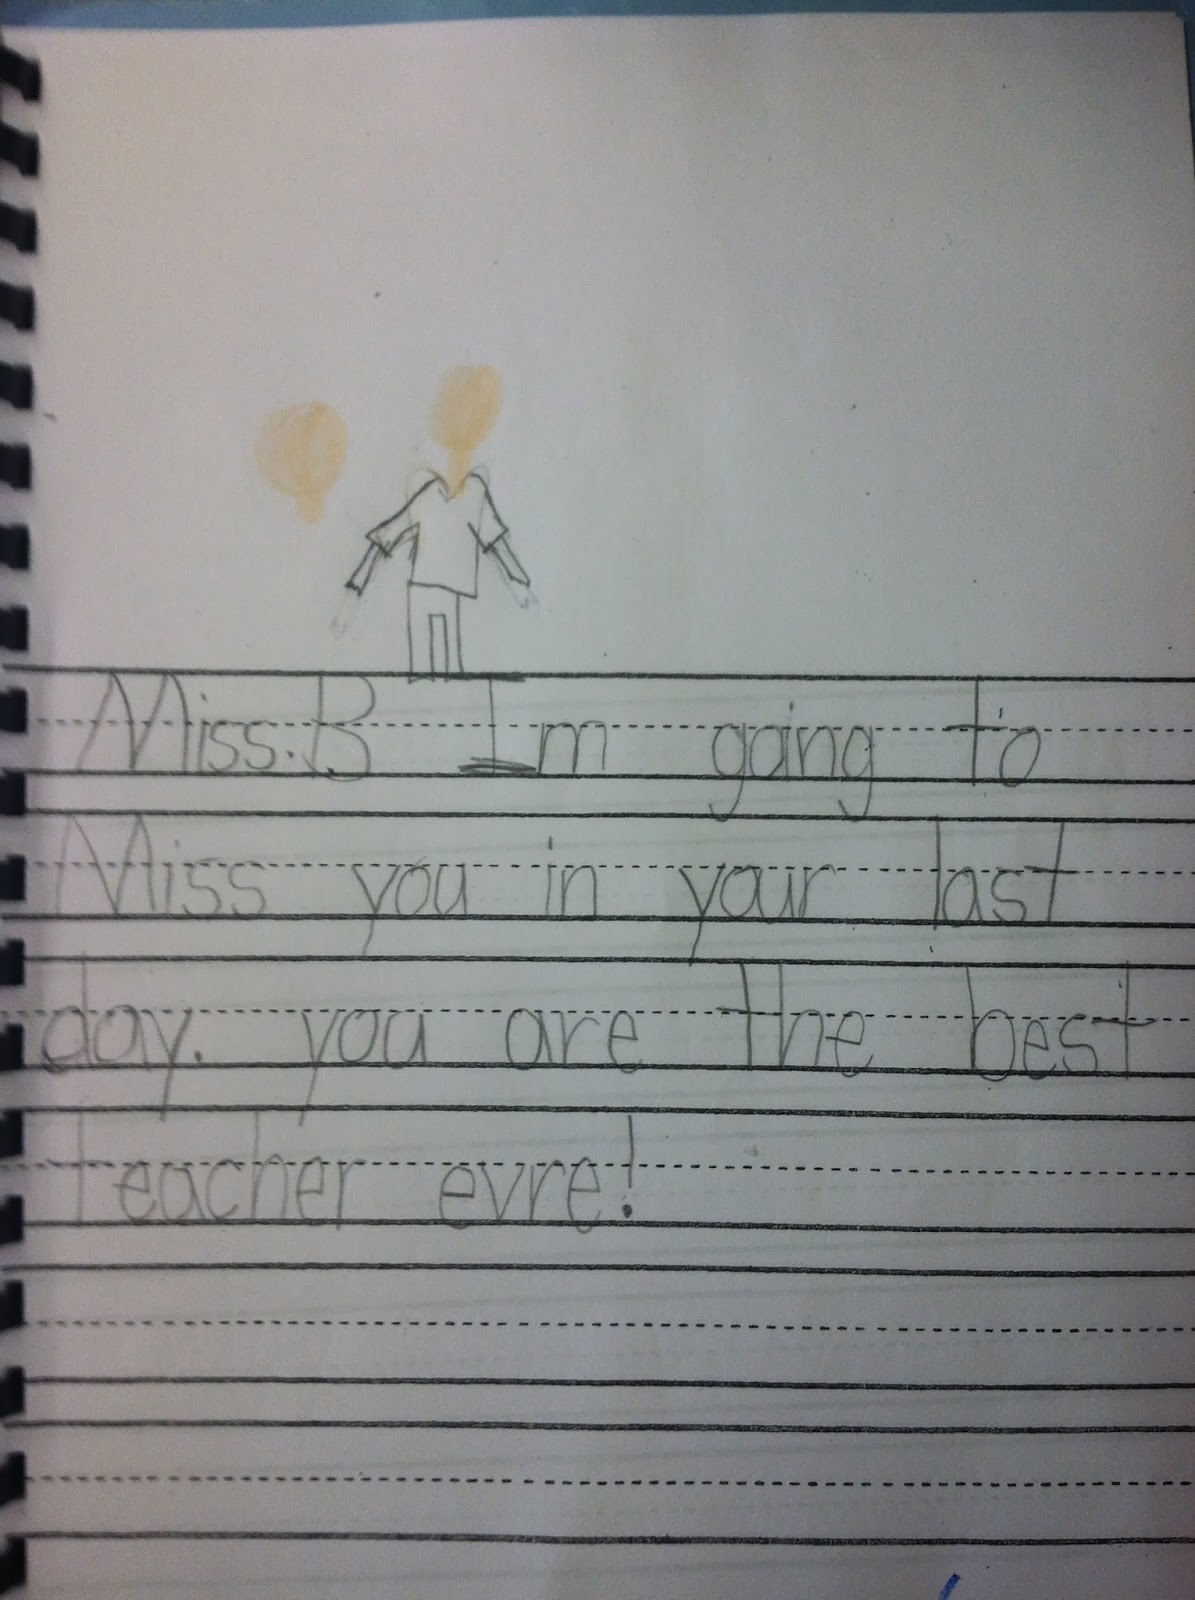 Miss.B Im going to
Miss you in your last
day. you are the best
teacher evre!